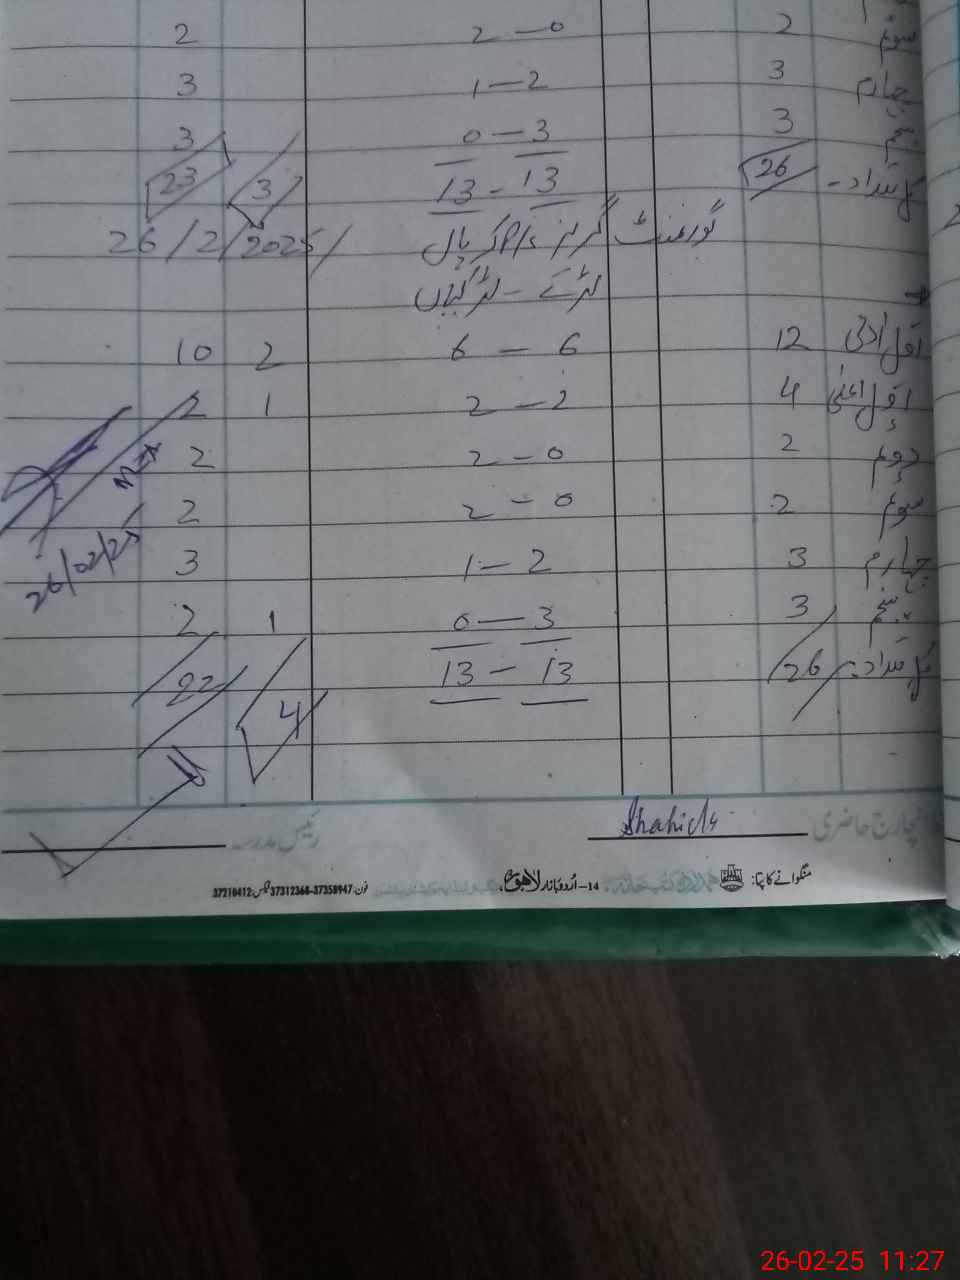 سوئم 2 2 — 0 2
چہارم 3 1 — 2 3
پنجم 3 0 — 3 3
کل تعداد - 26 13 - 13 3 23
گورنمنٹ گرلز P/S 26/2/2025
لڑکے - لڑکیاں
اول ادنیٰ 12 6 — 6 2 10
اول اعلیٰ 4 2 — 2 1 2
دوئم 2 2 — 0 2
سوئم 2 2 — 0 2
چہارم 3 1 — 2 3
پنجم 3 0 — 3 1 2
کل تعداد - 26 13 — 13 4 22
26/02/25
انچارج حاضری Shahida رئیس مدرسہ
منگوانے کا پتا: 14-اُردو بازار لاہور، فون: 37358947-37312368 فیکس: 37210412
26-02-25 11:27